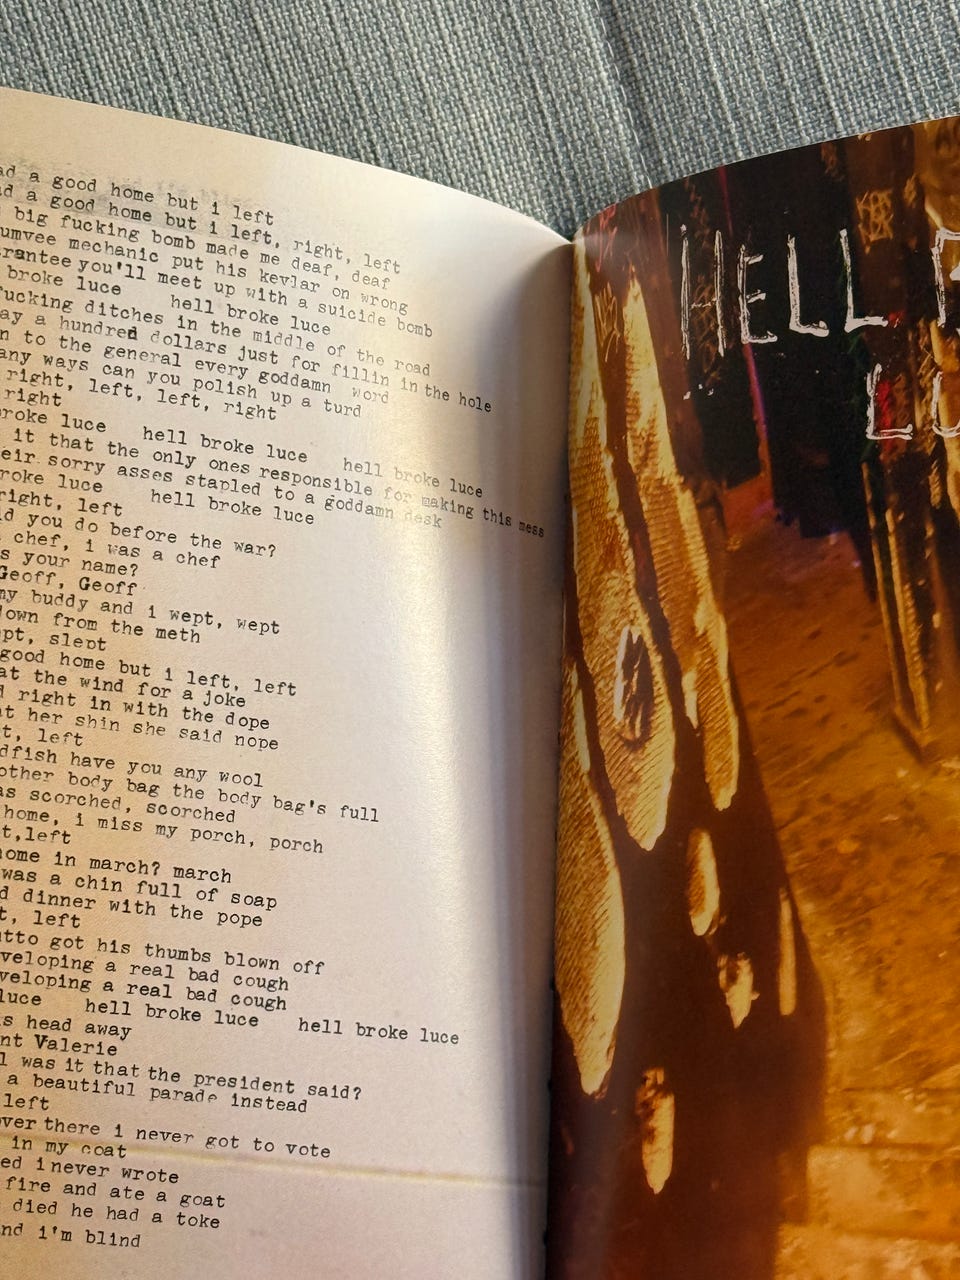 a good home but i left
a good home but i left, right, left
big fucking bomb made me deaf, deaf
mechanic put his kevlar on wrong
you'll meet up with a suicide bomb
broke luce hell broke luce
ditches in the middle of the road
a hundred dollars just for fillin in the hole
to the general every goddamn word
ways can you polish up a turd
right, left, left, right
right
luce hell broke luce hell broke luce
it that the only ones responsible for making this mess
sorry asses stapled to a goddamn desk
luce hell broke luce
right, left
you do before the war?
chef, i was a chef
your name?
Geoff, Geoff
my buddy and i wept, wept
from the meth
slept
good home but i left, left
at the wind for a joke
right in with the dope
her shin she said nope
left
have you any wool
body bag the body bag's full
scorched, scorched
home, i miss my porch, porch
left
in march? march
was a chin full of soap
dinner with the pope
left
got his thumbs blown off
a real bad cough
a real bad cough
luce hell broke luce hell broke luce
head away
Valerie
was it that the president said?
a beautiful parade instead
left
there i never got to vote
in my coat
i never wrote
fire and ate a goat
died he had a toke
i'm blind
HELL